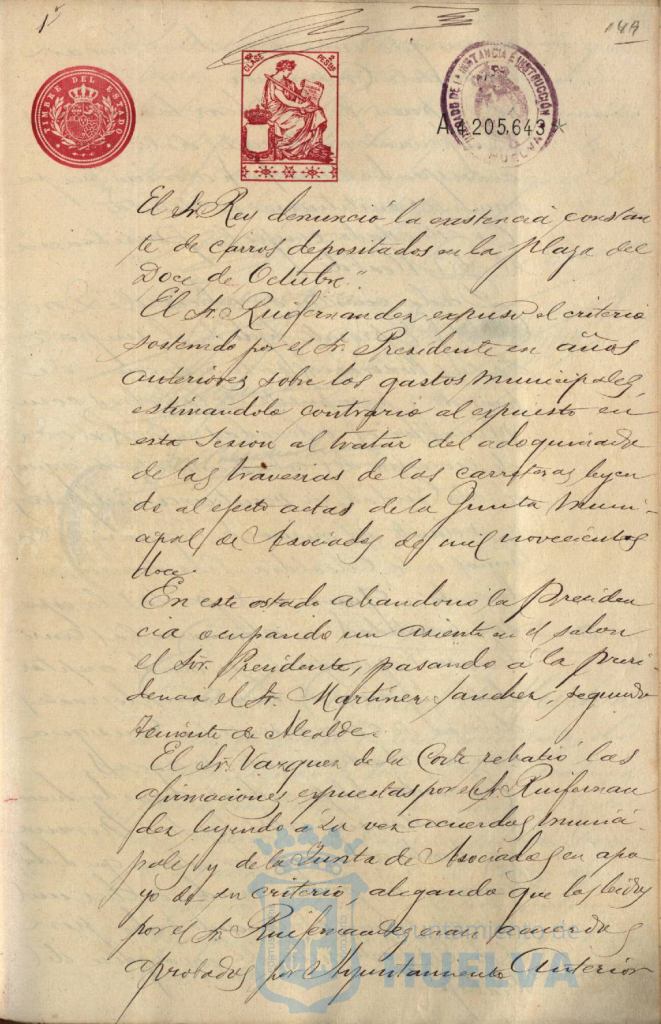 1ª
149
TIMBRE DEL ESTADO
CLASE
PESETAS
JUZGADO DE 1ª INSTANCIA E INSTRUCCIÓN
HUELVA
A.4.205.643 *
El Sr. Rey denunció la existencia constan
te de carros depositados en la plaza del
Doce de Octubre".
El Sr. Ruifernandez expuso el criterio
sostenido por el Sr. Presidente en años
anteriores sobre los gastos municipales,
estimándolo contrario al expuesto en
esta sesion al tratar del adoquinado
de las travesias de las carreteras leyen
do al efecto actas de la Junta muni-
cipal de Asociados de mil novecientos
doce.
En este estado abandonó la Presiden
cia ocupando un asiento en el salon
el Sor. Presidente, pasando á la presi
dencia el Sr. Martinez Sanchez, segundo
teniente de Alcalde.
El Sr. Vazquez de la Corte rebatió las
afirmaciones expuestas por el Sr. Ruifernan
dez leyendo á su vez acuerdos munici-
pales y de la Junta de Asociados en apo
yo de su criterio, alegando que los leidos
por el Sr. Ruifernandez eran acuerdos
aprobados por Ayuntamiento anterior
Ayuntamiento de
HUELVA